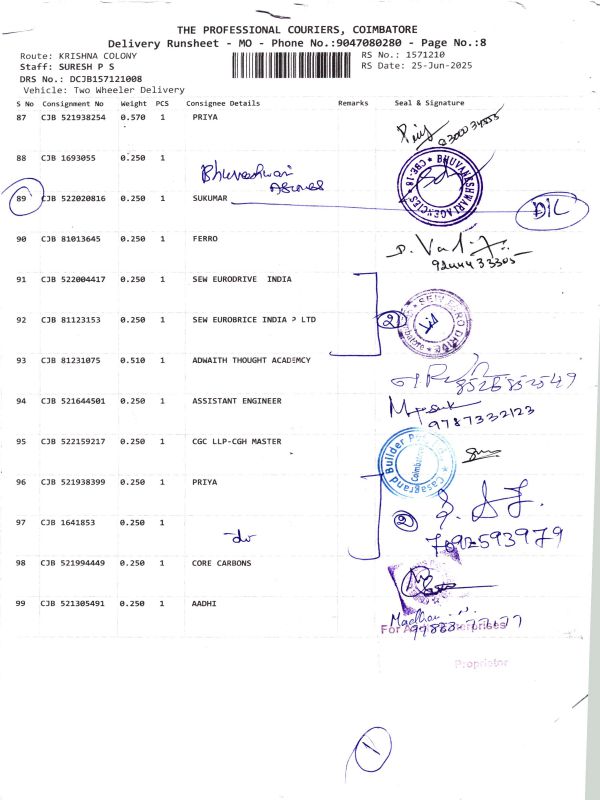 THE PROFESSIONAL COURIERS, COIMBATORE
Delivery Runsheet - MO - Phone No.:9047080280 - Page No.:8
Route: KRISHNA COLONY
RS No.: 1571210
Staff: SURESH P S
RS Date: 25-Jun-2025
DRS No.: DCJB157121008
Vehicle: Two Wheeler Delivery
S No Consignment No Weight PCS Consignee Details Remarks Seal & Signature
87 CJB 521938254 0.570 1 PRIYA
88 CJB 1693055 0.250 1
Bhuvaneshwari
BHUVANESHWARI AGENCIES * CBE-18 *
89 CJB 522020816 0.250 1 SUKUMAR
90 CJB 81013645 0.250 1 FERRO
9244433305
91 CJB 522004417 0.250 1 SEW EURODRIVE INDIA
92 CJB 81123153 0.250 1 SEW EUROBRICE INDIA P LTD
2
SEW EURO DRIVE
93 CJB 81231075 0.510 1 ADWAITH THOUGHT ACADEMCY
8526852549
94 CJB 521644501 0.250 1 ASSISTANT ENGINEER
9787332123
95 CJB 522159217 0.250 1 CGC LLP-CGH MASTER
Casagrand Builder
Coimbatore
96 CJB 521938399 0.250 1 PRIYA
97 CJB 1641853 0.250 1
2
7692593979
98 CJB 521994449 0.250 1 CORE CARBONS
99 CJB 521305491 0.250 1 AADHI
Madhan
Proprietor
1